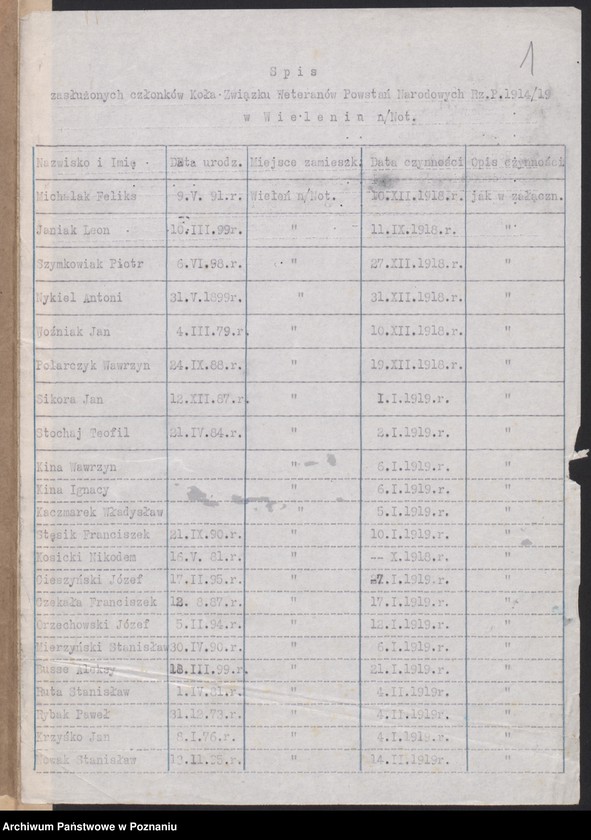 1
S p i s
zasłużonych członków Koła Związku Weteranów Powstań Narodowych Rz.P.1914/19
w W i e l e n i u n/Not.
Nazwisko i Imię Data urodz. Miejsce zamieszk. Data czynności Opis czynności
Michalak Feliks 9.V. 91.r. Wieleń n/Not. 10.XII.1918.r. jak w załączn.
Janiak Leon 10.III.99r. " 11.IX.1918.r. "
Szymkowiak Piotr 6.VI.98.r. " 27.XII.1918.r. "
Nykiel Antoni 31.V.1895r. " 31.XII.1918.r. "
Woźniak Jan 4.III.79.r. " 10.XII.1918.r. "
Polarczyk Wawrzyn 24.IX.88.r. " 19.XII.1918.r. "
Sikora Jan 12.XII.87.r. " I.I.1919.r. "
Stochaj Teofil 21.IV.84.r. " 2.I.1919.r. "
Kina Wawrzyn " 6.I.1919.r. "
Kina Ignacy " 6.I.1919.r. "
Kaczmarek Władysław " 5.I.1919.r. "
Stęsik Franciszek 21.IX.90.r. " 10.I.1919.r. "
Kosicki Nikodem 16.V. 81.r. " -- X.1918.r. "
Cieszyński Józef 17.II.95.r. " 7.I.1919.r. "
Czekała Franciszek 12. 8.87.r. " 17.I.1919.r. "
Orzechowski Józef 5.II.94.r. " 12.I.1919.r. "
Mierzyński Stanisław 30.IV.90.r. " 6.I.1919.r. "
Busse Aleksy 18.III.99.r. " 21.I.1919.r. "
Ruta Stanisław 1.IV.81.r. " 4.II.1919r. "
Rybak Paweł 31.12.73.r. " 4.II.1919r. "
Krzyśko Jan 8.I.76.r. " 4.I.1919.r. "
Nowak Stanisław " 14.II.1919r. "
Archiwum Państwowe w Poznaniu